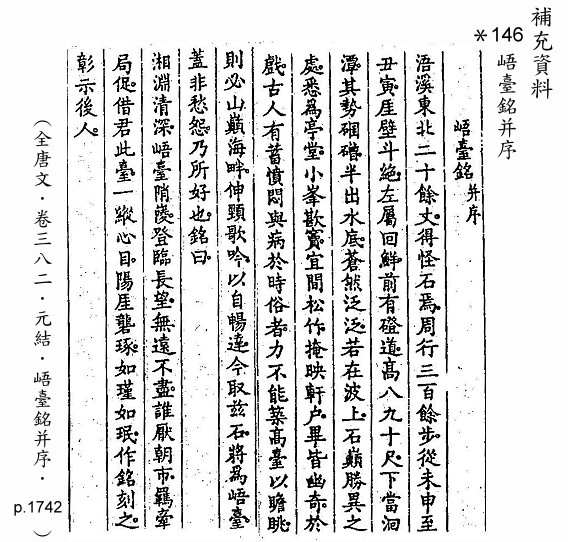 補充資料
*146 峿臺銘并序
峿臺銘并序
浯溪東北二十餘丈。得怪石焉。周行三百餘步。從未申至
丑寅。厓壁斗絕。左屬回鮮。前有磴道。高八九十尺。下當洄
潭。其勢硱磳。半出水底。蒼然泛泛。若在波上。石巔勝異之
處。悉為亭堂。小峯嵌竇。宜間松竹。掩映軒戶。畢皆幽奇。於
戲。古人有蓄憤悶與病於時俗者。力不能築高臺以瞻眺。
則必山巔海畔。伸頸歌吟。以自暢達。今取茲石。將為峿臺。
蓋非愁怨。乃所好也。銘曰。
湘淵清深。峿臺陗㥄。登臨長望。無遠不盡。誰厭朝市。羈牽
局促。借君此臺。一縱心目。陽厓礱琢。如瑾如珉。作銘刻之。
彰示後人。
（全唐文．卷三八二．元結．峿臺銘并序．p.1742）